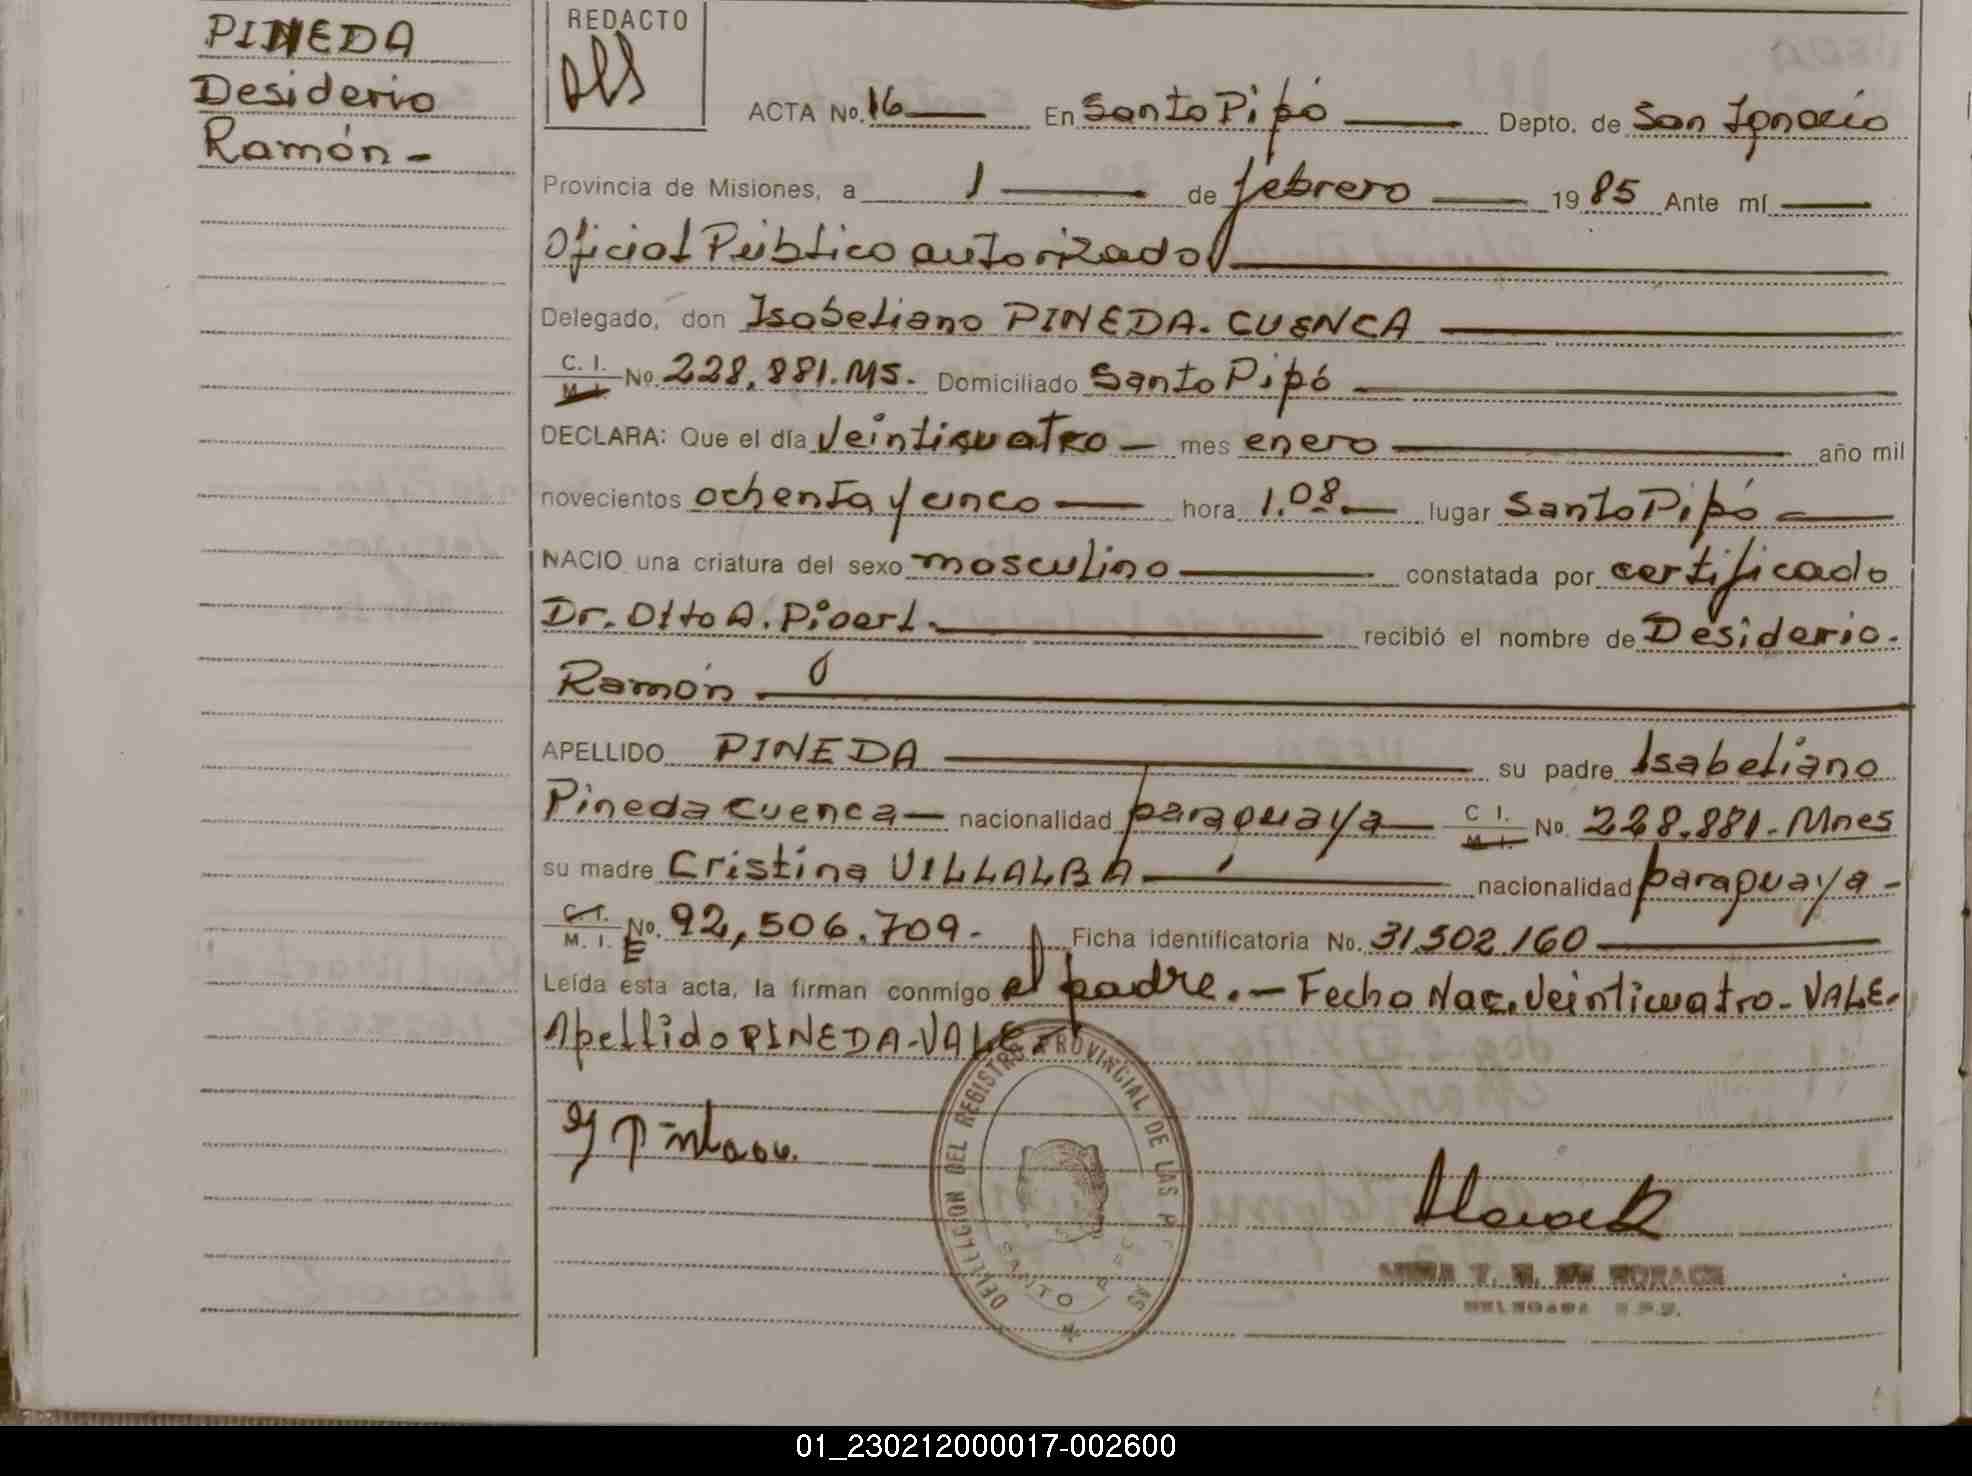 PINEDA
Desiderio
Ramón -
REDACTO
ACTA No. 16 En Santo Pipó Depto. de San Ignacio
Provincia de Misiones, a 1 de febrero 1985 Ante mí
Oficial Público autorizado
Delegado, don Isabeliano PINEDA. CUENCA
C. I. M. I. No. 228.881.MS. Domiciliado Santo Pipó
DECLARA: Que el día veinticuatro mes enero año mil
novecientos ochenta y cinco hora 1.08 lugar Santo Pipó
NACIO una criatura del sexo masculino constatada por certificado
Dr. Otto A. recibió el nombre de Desiderio.
Ramón
APELLIDO PINEDA su padre Isabeliano
Pineda Cuenca nacionalidad paraguaya C I. M. I. No. 228.881. Mnes
su madre Cristina VILLALBA nacionalidad paraguaya -
C. I. M. I. E No. 92,506.709. Ficha identificatoria No. 31.502.160
Leída esta acta, la firman conmigo el padre. - Fecha Nac. Veinticuatro - VALE.
Apellido PINEDA - VALE
DELEGACION DEL REGISTRO PROVINCIAL DE LAS
SANTO
01_230212000017-002600